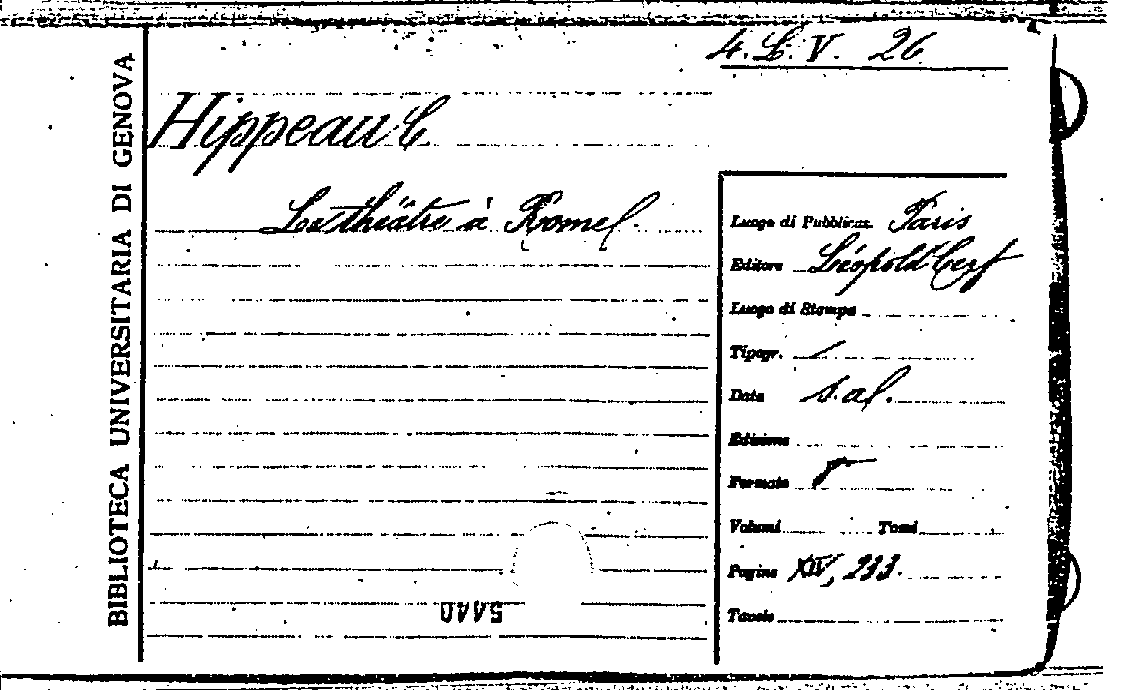 4. L. V. 26
BIBLIOTECA UNIVERSITARIA DI GENOVA
Hippeau C.
Le théâtre à Rome
Luogo di Pubblicaz. Paris
Editore Léopold Cerf
Luogo di Stampa
Tipogr. /
Data s. a.
Edizione
Formato 8
Volumi Tomi
Pagine XIV, 233.
Tavole
5440